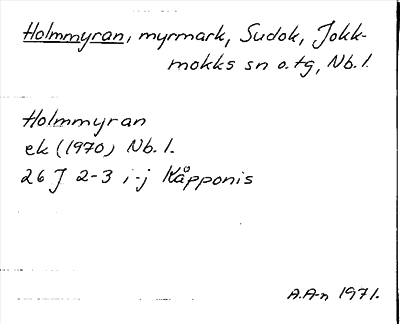 Holmmyran, myrmark, Sudok, Jokk-
mokks sn o. tg, Nb. l.
Holmmyran
ek (1970) Nb. l.
26 J 2-3 i-j Kåpponis
A.A-n 1971.